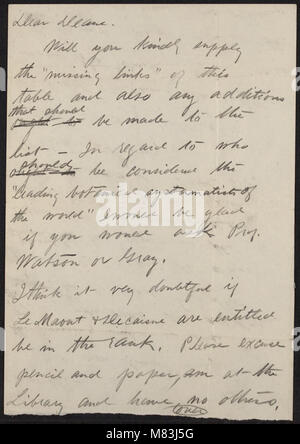 Dear Deane.
Will you kindly supply
the "missing links" of this
table and also any additions
that should
be made to the
list - In regard to who
should be considered the
"leading botanical systematists of
the world" I would be glad
if you would ask Prof.
Watson or Gray.
I think it very doubtful if
Le Maout & Decaisne are entitled
be in the rank. Please excuse
pencil and paper, am at the
Library and have no others.
(over)
alamy
www.alamy.com
M83J5G